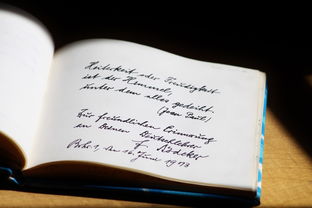 Heiterkeit oder Freudigkeit
ist der Himmel,
unter dem alles gedeiht.
(Jean Paul)
Zur freundlichen Erinnerung
an
F.
den 16. Juni 1978